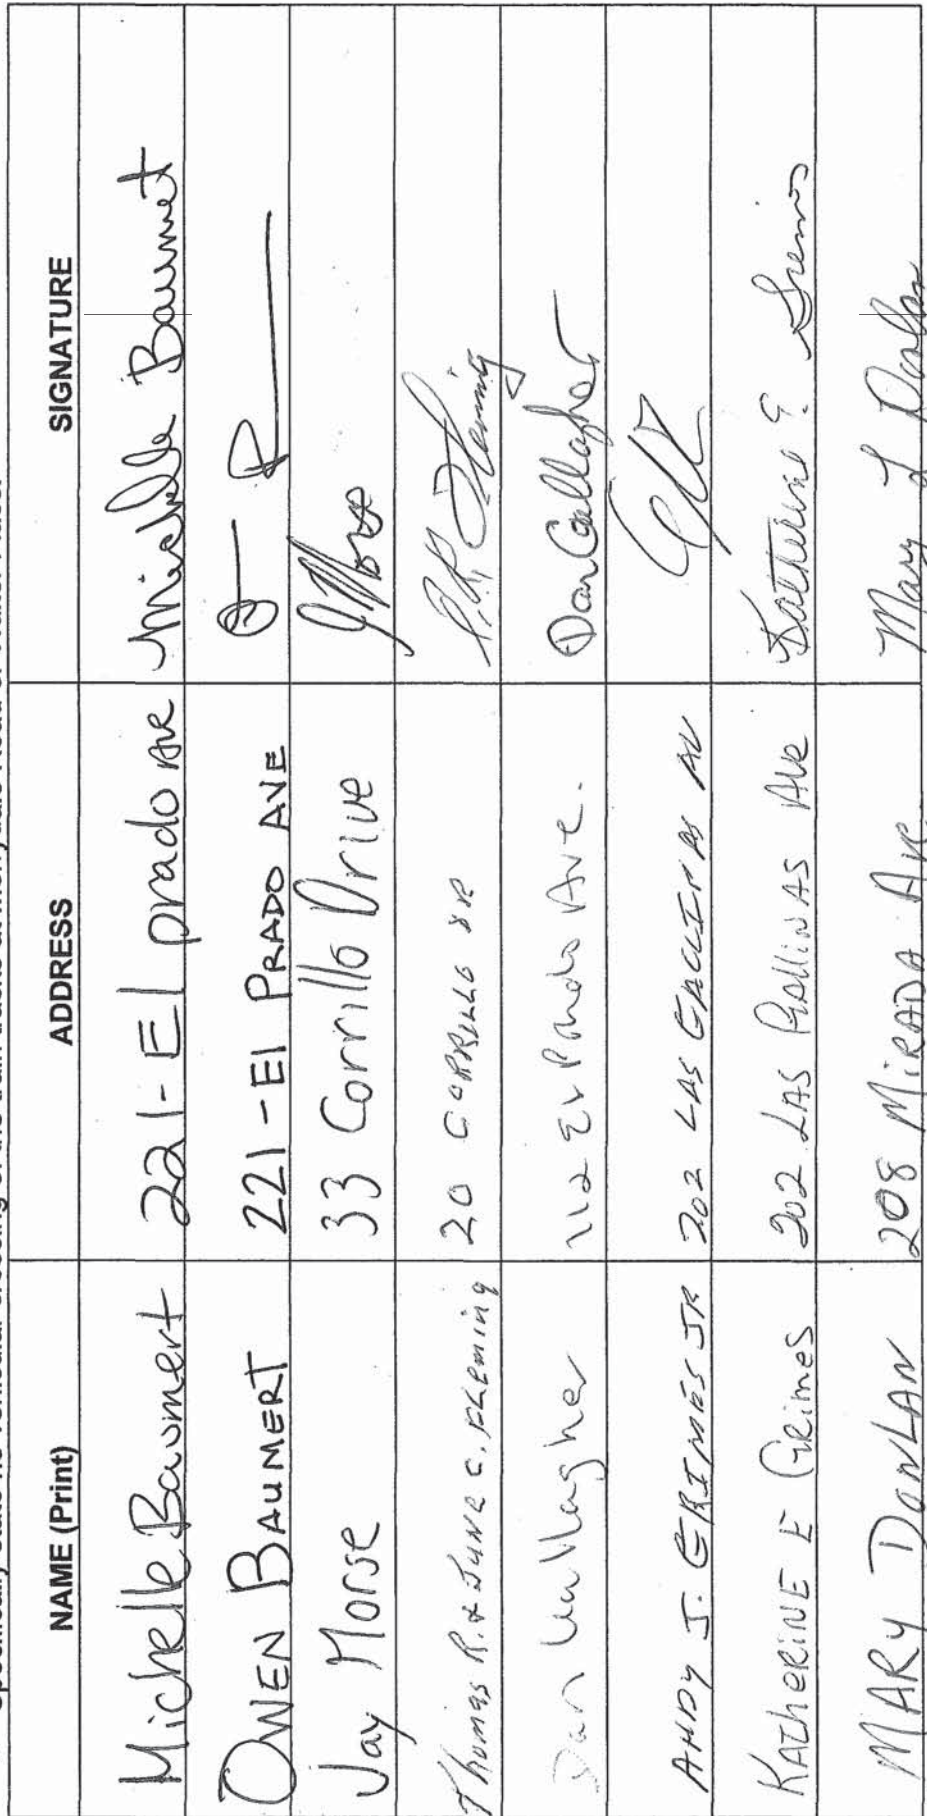 NAME (Print) ADDRESS SIGNATURE
Michelle Baumert 221-El prado Ave Michelle Baumert
OWEN BAUMERT 221-El PRADO AVE
Jay Morse 33 Corrillo Drive JMorse
Thomas R. & June C. Fleming 20 CORRILLO DR Fleming
Dan Gallagher 112 El Prado Ave. Dan Gallagher
ANDY J. GRIMES JR 202 LAS GALLINAS AV
KATHERINE E GRimes 202 LAS GALLINAS AVe Katherine E Grimes
MARY DONLAN 208 MiRADA AVE Mary L Donlan